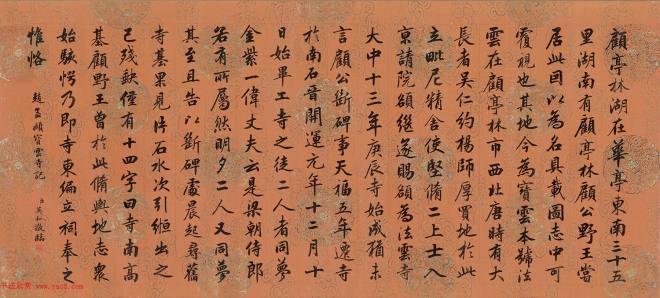 顧亭林湖在華亭東南三十五
里湖南有顧亭林顧公野王嘗
居此因以為名具載圖志中可
覆視也其地今為寶雲本號法
雲在顧亭林市西北唐時有大
長者吳仁約楊師厚買地於此
立毗尼精舍使堅脩二上士入
京請院額継遂賜額為法雲寺
大中十三年庚辰寺始成猶未
言顧公斷碑事天福五年遷寺
於南石晉開運元年十二月十
日始畢工寺之徒二人者同夢
金紫一偉丈夫云是梁朝侍郎
若有所屬然明夕二人又同夢
其至且告以斷碑處晨起尋舊
寺基果見片石水次引絙出之
已殘缺僅有十四字曰寺南高
基顧野王曾於此脩輿地志衆
始駭愕乃即寺東偏立祠奉之
惟恪
趙孟頫寶雲寺記
英和敬臨
书法欣赏 www.yac8.com